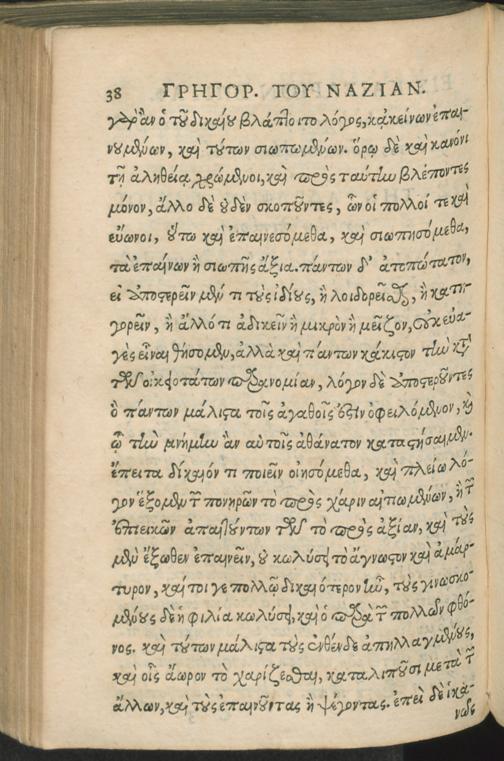 38 ΓΡΗΓΟΡ. ΤΟΥ ΝΑΖΙΑΝ.
γὰρ ἂν ὁ τοῦ δικαίου βλάπτοιτο λόγος, κἀκείνων ἐπαι-
νουμένων, καὶ τούτων σιωπωμένων. ὅρῳ δὲ καὶ κανόνι
τῇ ἀληθείᾳ χρώμενοι, καὶ πρὸς ταύτην βλέποντες
μόνον, ἄλλο δὲ οὐδὲν σκοποῦντες, ὧν οἱ πολλοί τε καὶ
εὔωνοι, οὕτω καὶ ἐπαινεσόμεθα, καὶ σιωπησόμεθα,
τὰ ἐπαίνων ἢ σιωπῆς ἄξια. πάντων δ' ἀτοπώτατον,
εἰ ἀποστερεῖν μέν τι τοὺς ἰδίους, ἢ λοιδορεῖσθαι, ἢ κατη-
γορεῖν, ἢ ἄλλό τι ἀδικεῖν ἢ μικρὸν ἢ μεῖζον, οὐκ εὐα-
γὲς εἶναι θήσομεν, ἀλλὰ καὶ πάντων κάκιστον τὴν κατὰ
τῶν οἰκειοτάτων παρανομίαν, λόγον δὲ ἀποστεροῦντες
ὃ πάντων μάλιστα τοῖς ἀγαθοῖς ἐστὶν ὀφειλόμενον, καὶ
ᾧ τὴν μνήμην ἂν αὐτοῖς ἀθάνατον καταστήσαιμεν.
ἔπειτα δίκαιόν τι ποιεῖν οἰησόμεθα, καὶ πλείω λό-
γον ἕξομεν τῶν πονηρῶν τὸ πρὸς χάριν αἰτιωμένων, ἢ τῶν
ἐπιεικῶν ἀπαιτούντων τῶν τὸ πρὸς ἀξίαν, καὶ τοὺς
μὲν ἔξωθεν ἐπαινεῖν, οὐ κωλύσει τὸ ἄγνωστον καὶ ἀμάρ-
τυρον, καίτοι γε πολλῷ δικαιότερον ἦν, τοὺς γινωσκο-
μένους δὲ ἡ φιλία κωλύσει, καὶ ὁ παρὰ τῶν πολλῶν φθό-
νος. καὶ τούτων μάλιστα τοὺς ἐνθένδε ἀπηλλαγμένους,
καὶ οἷς ἄωρον τὸ χαρίζεσθαι, καταλιποῦσι μετὰ τῶν
ἄλλων, καὶ τοὺς ἐπαινοῦντας ἢ ψέγοντας. ἐπεὶ δὲ ἱκα-
νῶς